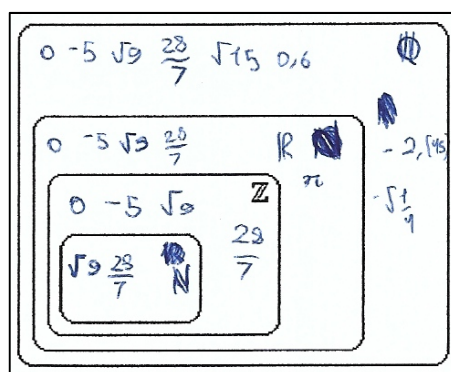 0 -5 √9 28/7 √15 0,6
0 -5 √9 28/7 ℝ
π
- 2,(45)
-√1/4
0 -5 √9 ℤ
28/7
√9 28/7 N